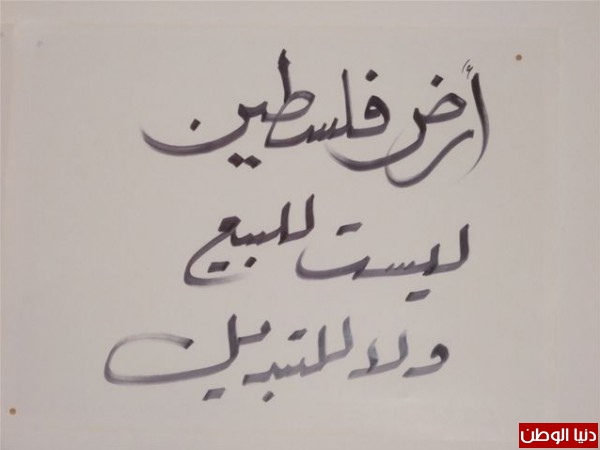 أرض فلسطين
ليست للبيع
ولا للتبديل
دنيا الوطن